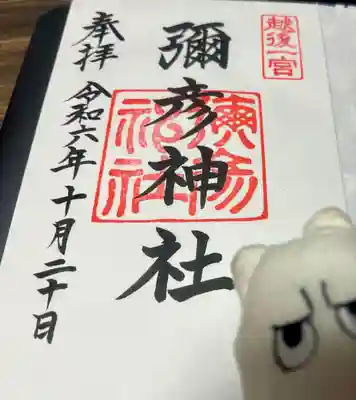 越後一宮
彌彦神社
奉拝
令和六年十月二十日